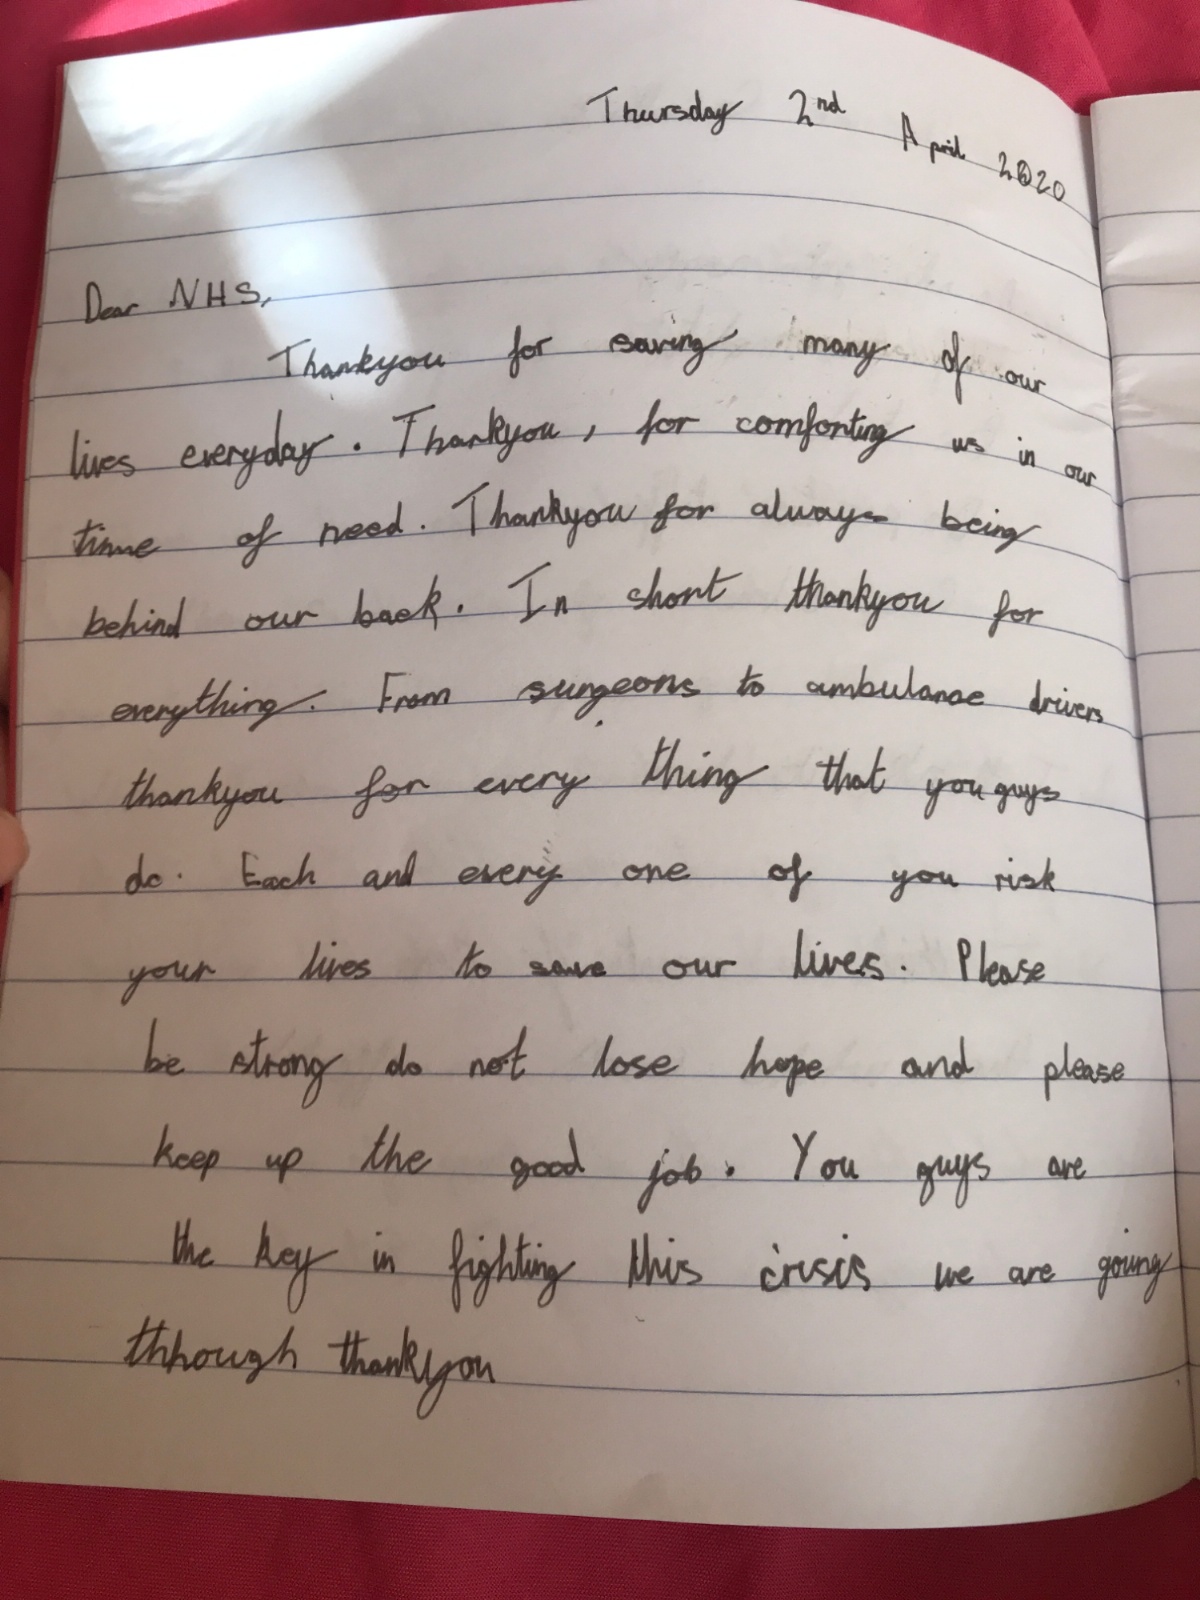 Thursday 2nd April 2020
Dear NHS,
Thankyou for saving many of our
lives everyday. Thankyou, for comforting us in our
time of need. Thankyou for always being
behind our back. In short thankyou for
everything. From surgeons to ambulance drivers
thankyou for every thing that you guys
do. Each and every one of you risk
your lives to save our lives. Please
be strong do not lose hope and please
keep up the good job. You guys are
the key in fighting this crisis we are going
through thankyou